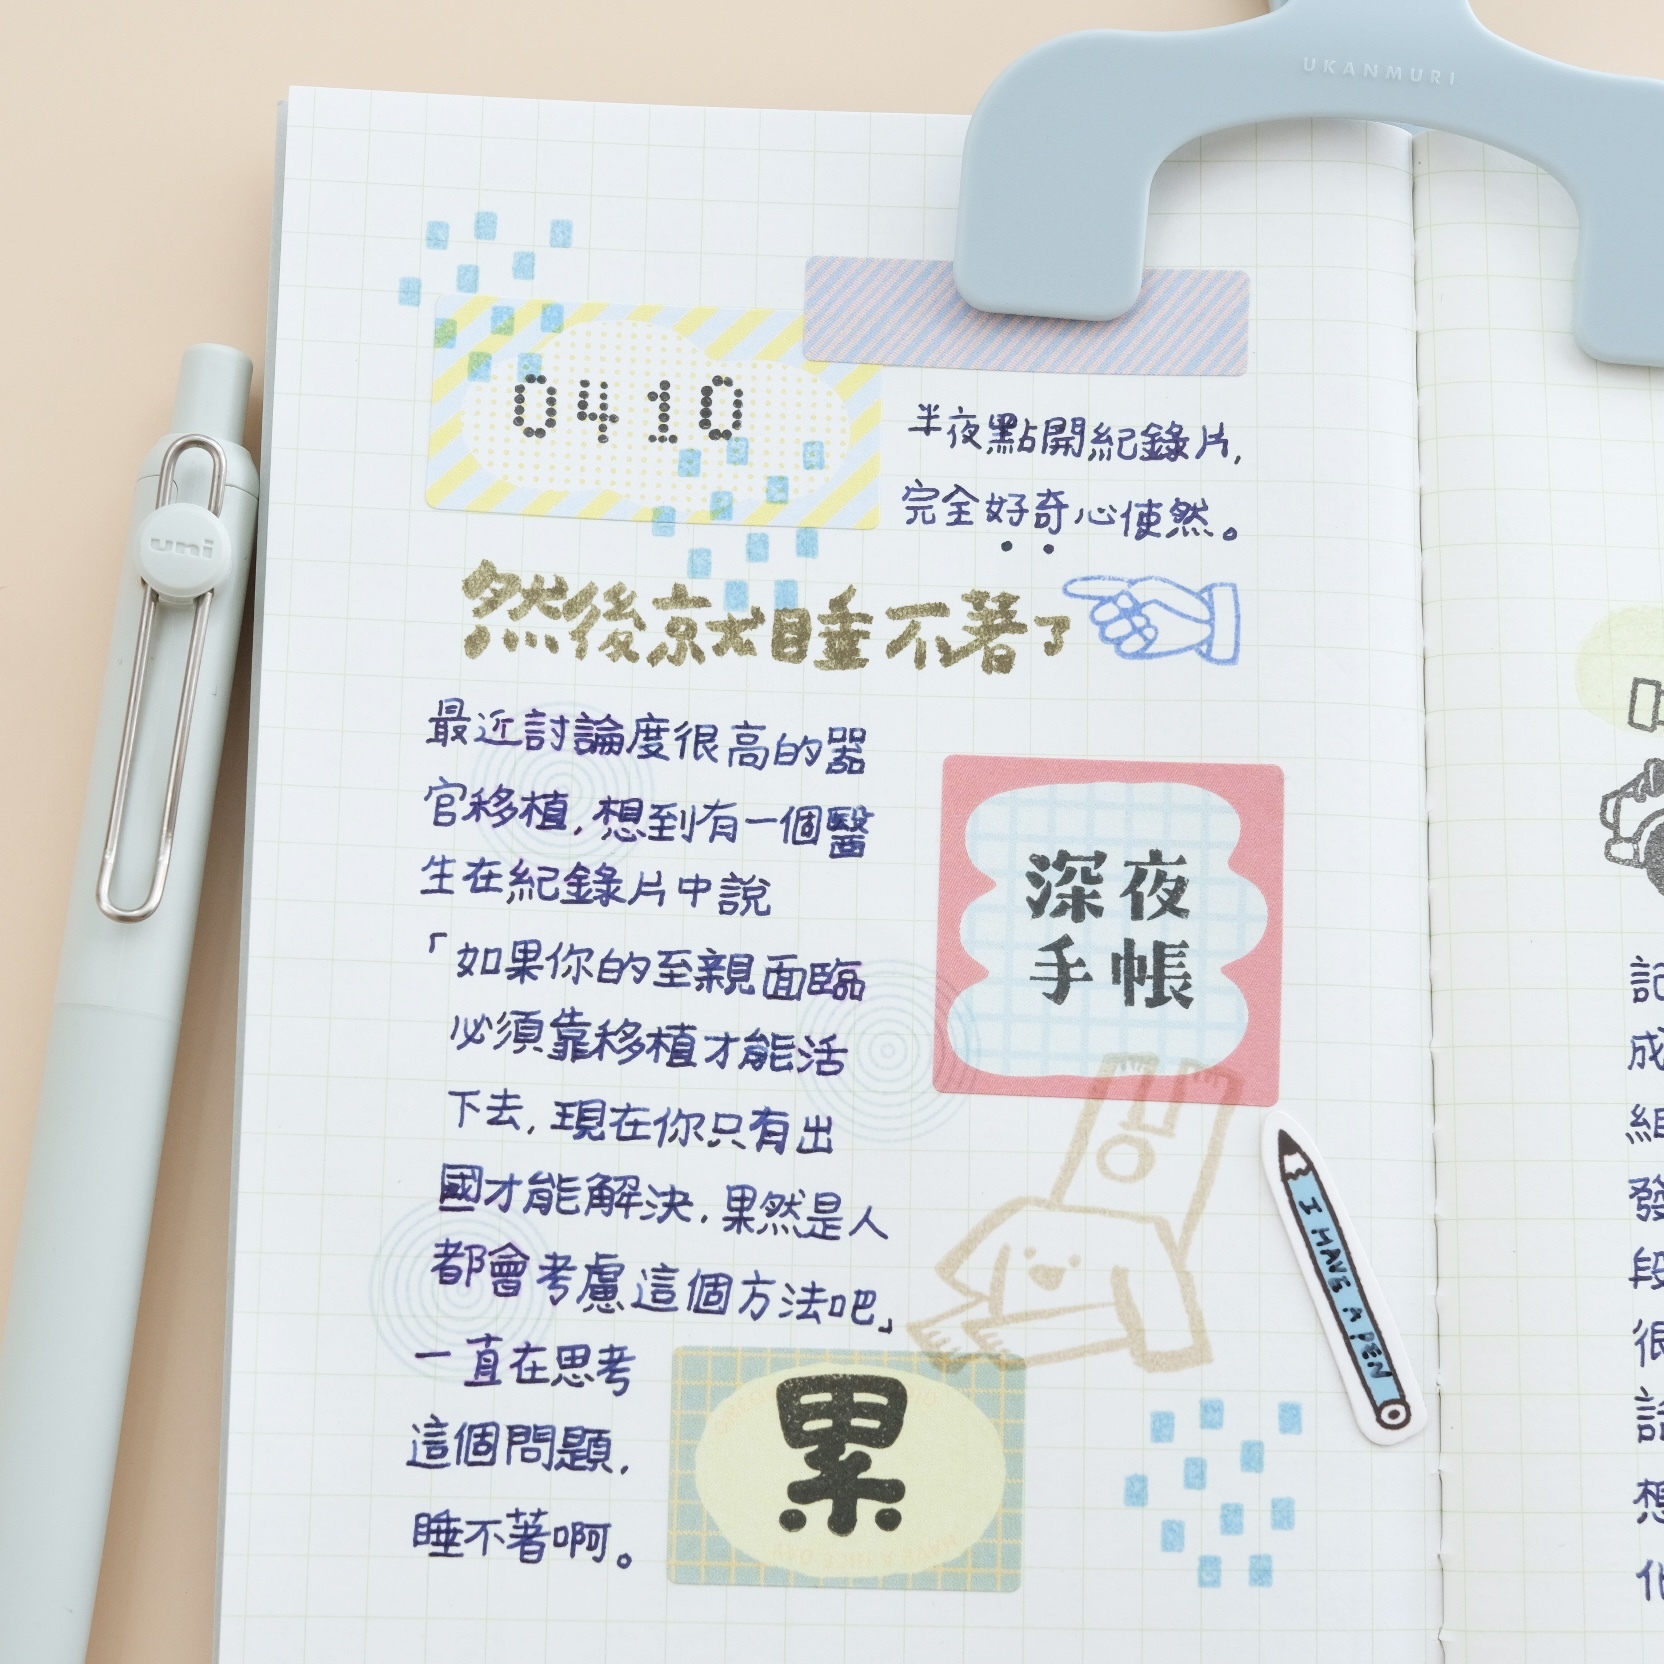 UKANMURI
uni
0410
半夜點開紀錄片,
完全好奇心使然。
然後就睡不著了
最近討論度很高的器
官移植,想到有一個醫
生在紀錄片中說
「如果你的至親面臨
必須靠移植才能活
下去,現在你只有出
國才能解決,果然是人
都會考慮這個方法吧」
一直在思考
這個問題,
睡不著啊。
深夜
手帳
I HAVE A PEN
累
記
成
組
發
段
很
話
想
化